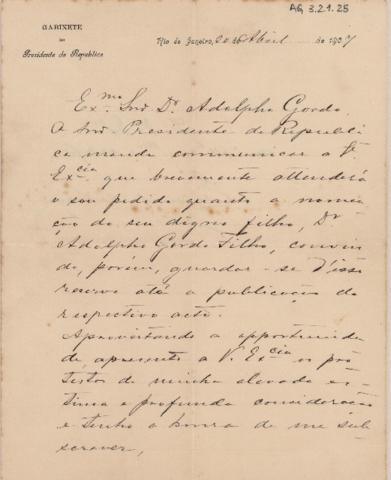 AG 3.21.25
GABINETE
DO
Presidente da Republica
Rio de Janeiro, 20 de Abril de 1907
Ex.mo Snr. Dr. Adolpho Gordo.
O Snr. Presidente da Republi
ca manda communicar a V.
Ex.cia que brevemente attenderá
o seu pedido quanto a nomea
ção do seu digno filho, Dr
Adolpho Gordo Filho, convin
do, porém, guardar-se d'isso
reserva até a publicação do
respectivo acto.
Aproveitando a opportunida
de apresento a V. Ex.cia os pro
testos de minha elevada es
tima e profunda consideração
e tenho a honra de me sub
screver,